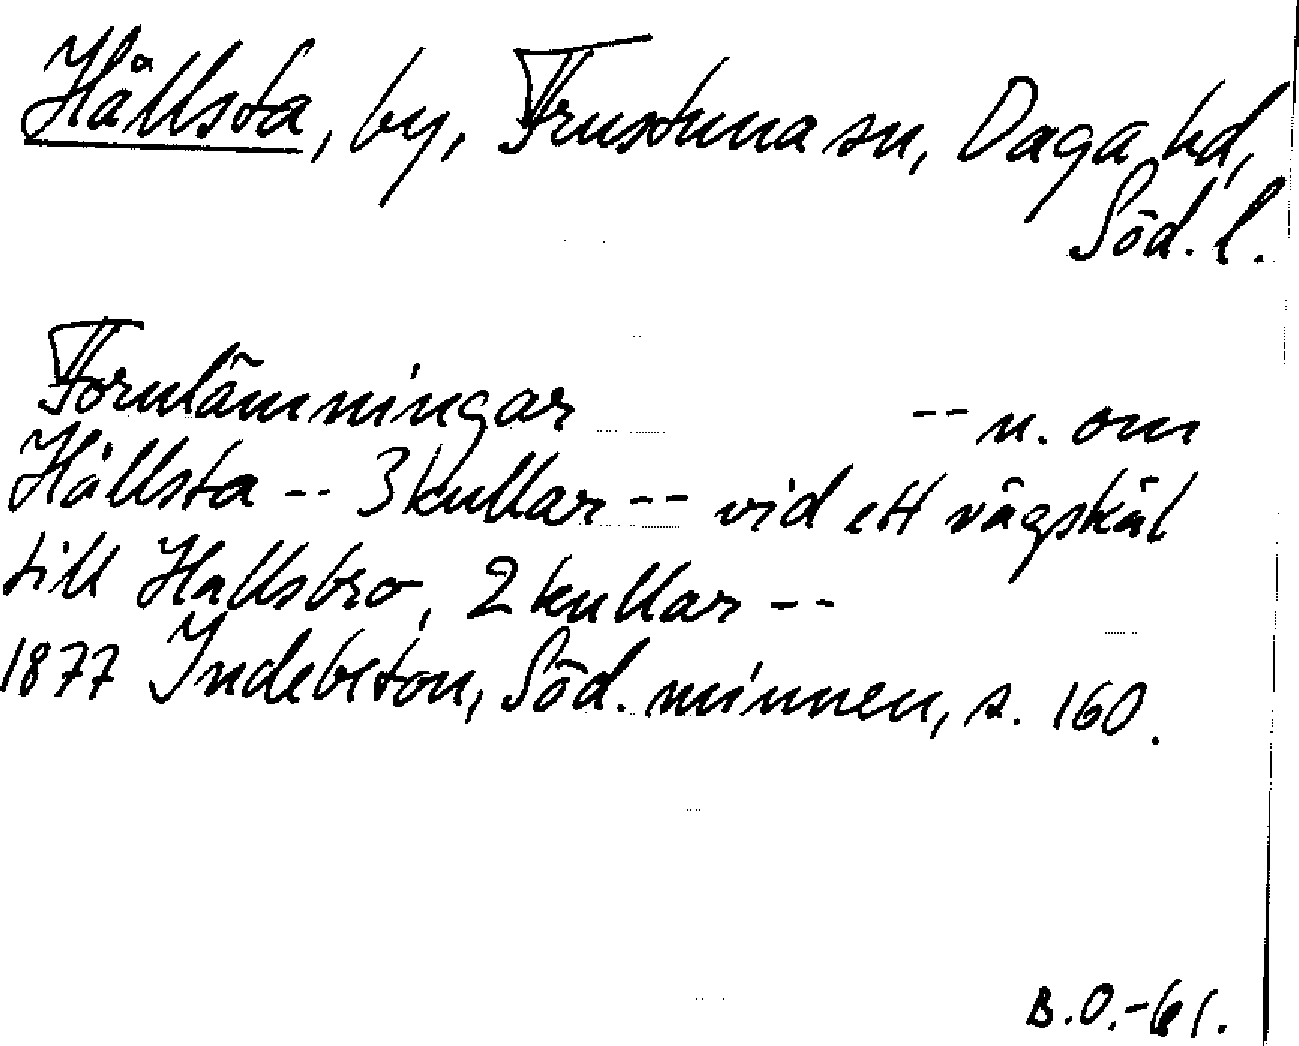 Hållsta, by, Frustuna sn, Daga hd,
Söd. l.
Fornlämningar -- n. om
Hållsta -- 3 kullar -- vid ett vägskäl
till Hallsbro, 2 kullar --
1877 Indebetou, Söd. minnen, s. 160.
B.O.-61.